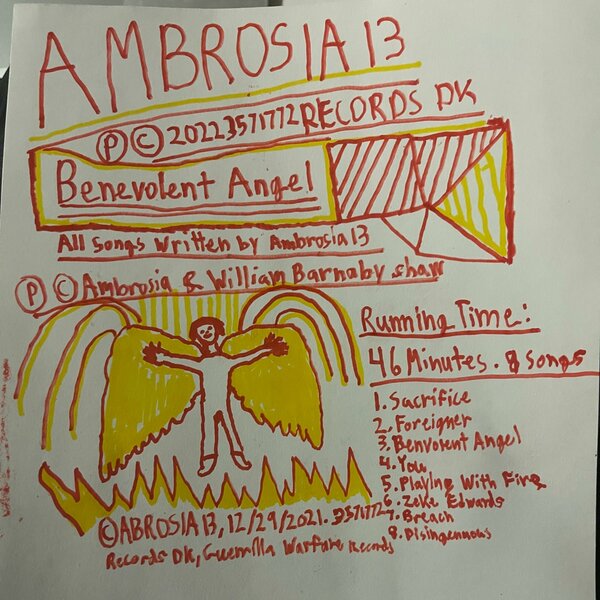 AMBROSIA 13
Ⓟ © 2022 3571772 RECORDS DK
Benevolent Angel
All Songs Written by Ambrosia 13
Ⓟ © Ambrosia & William Barnaby shaw
Running Time:
46 Minutes. 8 songs
1. Sacrifice
2. Foreigner
3. Benvolent Angel
4. You
5. Playing With Fire
6. Zeke Edwards
7. Breach
8. Disingenuous
© ABROSIA 13, 12/29/2021. 3571772
Records DK, Guerrilla Warfare Records